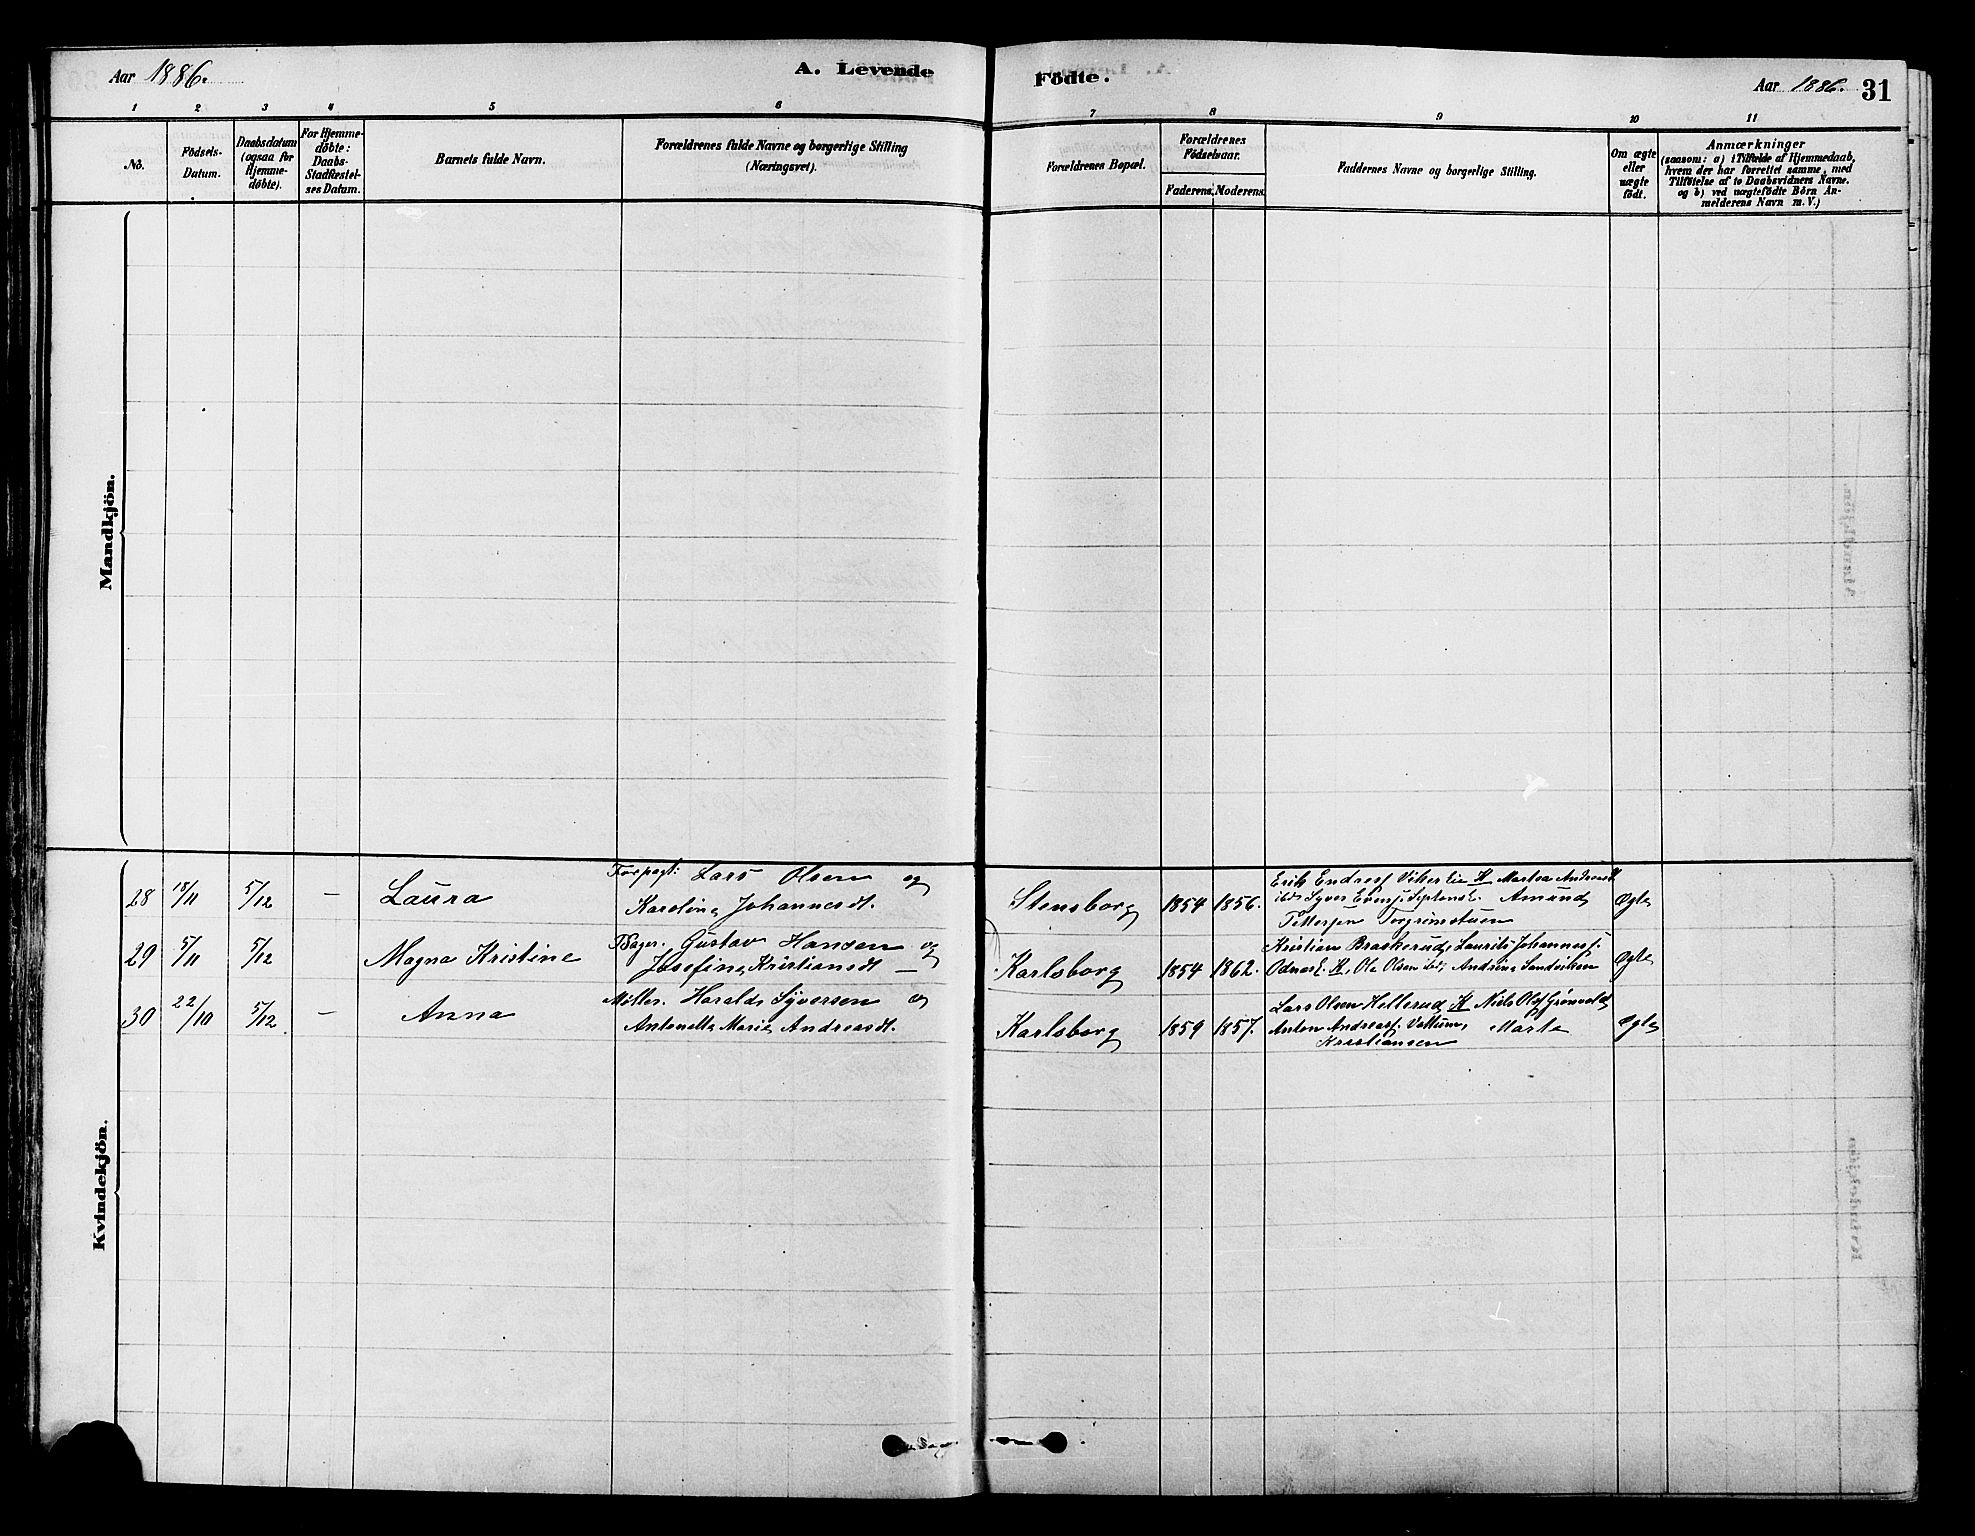 Aar 1886.
A. Levende
Födte.
Aar 1886.
31
1 2 3 4 5 6
7 8 9 10 11
No.
Födsels-
Datum.
Daabsdatum
(ogsaa for
Hjemme-
döbte).
For Hjemme-
døbte:
Daabs-
Stadfæstel-
ses Datum.
Barnets fulde Navn.
Forældrenes fulde Navne og borgerlige Stilling
(Næringsvei).
Forældrenes Bopæl.
Forældrenes
Födselsaar.
Faderens. Moderens.
Faddernes Navne og borgerlige Stilling.
Om ægte
eller
uægte
födt.
Anmærkninger
(saasom: a) i Tilfælde af Hjemmedaab,
hvem der har forrettet samme, med
Tilföielse af to Daabsvidners Navne.
og b) ved uægtefödte Börn An-
melderens Navn m. V.)
Mandkjön.
Kvindekjön.
28 18/11 5/12 — Laura
Forpagt: Lars Olsen og
Karoline Johannesdt.
Stensborg 1854 1856.
Erik Endres Vikerlie K Martea Andersdt
ibd; Syver Evens; Amund
Pettersen Torgrimstuen
Ægte
29 5/11 5/12 Magna Kristine
Bager. Gustav Hansen og
Josefine Kristiansdt —
Karlsborg 1854 1862.
Kristian Braskerud, Laurits Johannes.
Odnæs. K, Ole Olsen ibd; Andrine Sandviken
Ægte
30 22/10 5/12 — Anna
Møller. Harald Syversen og
Antonette Marie Andreasdt.
Karlsborg 1859 1857.
Lars Olsen Hellerud K Niels Ols. Grønvold
Anton Andreas. Vollum, Marte
Kristiansen
Ægte